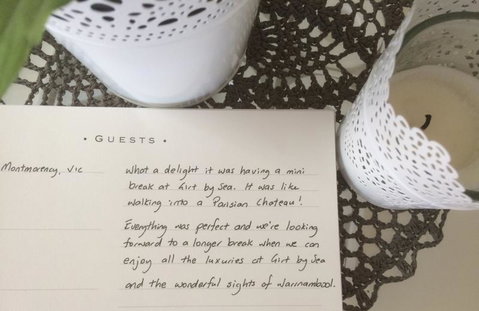 • GUESTS •
Montmorency, Vic
What a delight it was having a mini
break at Girt by Sea. It was like
walking into a Parisian Chateau!
Everything was perfect and we're looking
forward to a longer break when we can
enjoy all the luxuries at Girt by Sea
and the wonderful sights of Warrnambool.